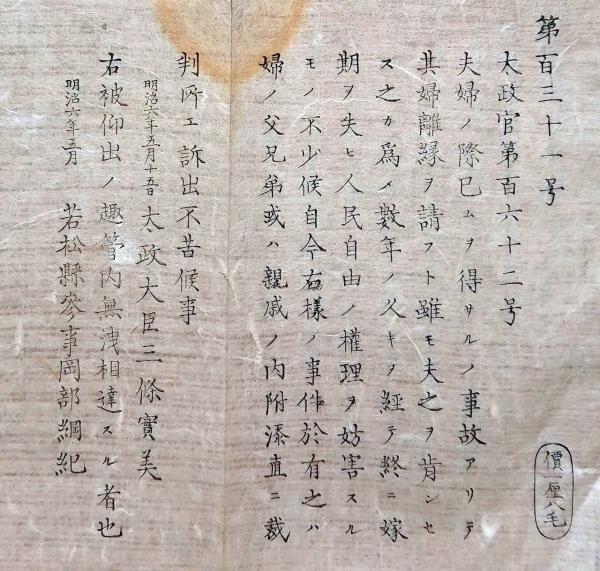 第百三十一号
太政官第百六十二号
夫婦ノ際已ムヲ得サルノ事故アリテ
其婦離縁ヲ請フト雖モ夫之ヲ肯ンセ
ス之カ為メ數年ノ久キヲ經テ終ニ嫁
期ヲ失ヒ人民自由ノ權理ヲ妨害スル
モノ不少候自今右様ノ事件於有之ハ
婦ノ父兄弟或ハ親戚ノ内附添直ニ裁
判所エ訴出不苦候事
明治六年五月十五日 太政大臣三條實美
右被仰出ノ趣管内無洩相達スル者也
明治六年五月 若松縣參事岡部綱紀
價一厘八毛